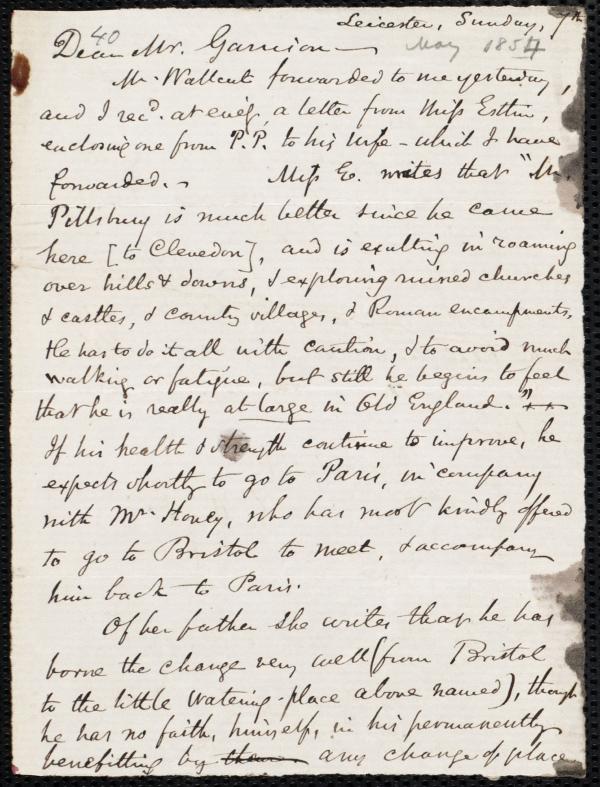 Leicester, Sunday, 7th
40
May 1854
Dear Mr. Garrison—
Mr. Wallcut forwarded to me yesterday,
and I recd. at eve'g, a letter from Miss Estlin,
enclosing one from P.P. to his wife – which I have
forwarded. – Miss E. writes that "Mr.
Pillsbury is much better since he came
here [to Clevedon], and is exulting in roaming
over hills & downs, & exploring ruined churches
& castles, & country villages, & Roman encampments.
He has to do it all with caution, & to avoid much
walking or fatigue, but still he begins to feel
that he is really at large in Old England."
If his health & strength continue to improve, he
expects shortly to go to Paris, in company
with Mr. Hovey, who has most kindly offered
to go to Bristol to meet, & accompany
him back to Paris.
Of her father she writes that he has
borne the change very well (from Bristol
to the little watering-place above named), though
he has no faith, himself, in his permanently
benefitting by any change of place